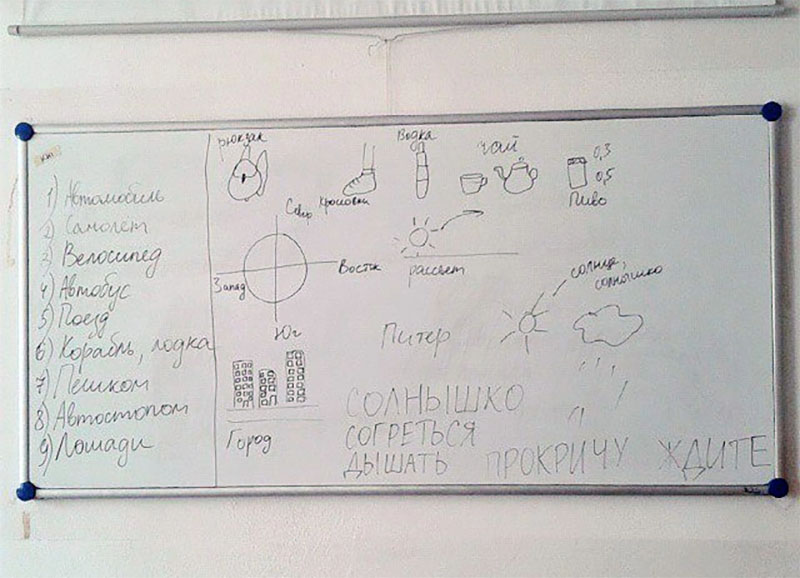 1) Автомобиль
2) Самолет
3) Велосипед
4) Автобус
5) Поезд
6) Корабль, лодка
7) Пешком
8) Автостопом
9) Лошади
рюкзак
Кросовки
Водка
чай
0,3
0,5
Пиво
Восток
Запад
Юг
рассвет
Питер
солнце,
солнышко
Город
СОЛНЫШКО
СОГРЕТЬСЯ
ДЫШАТЬ ПРОКРИЧУ ЖДИТЕ